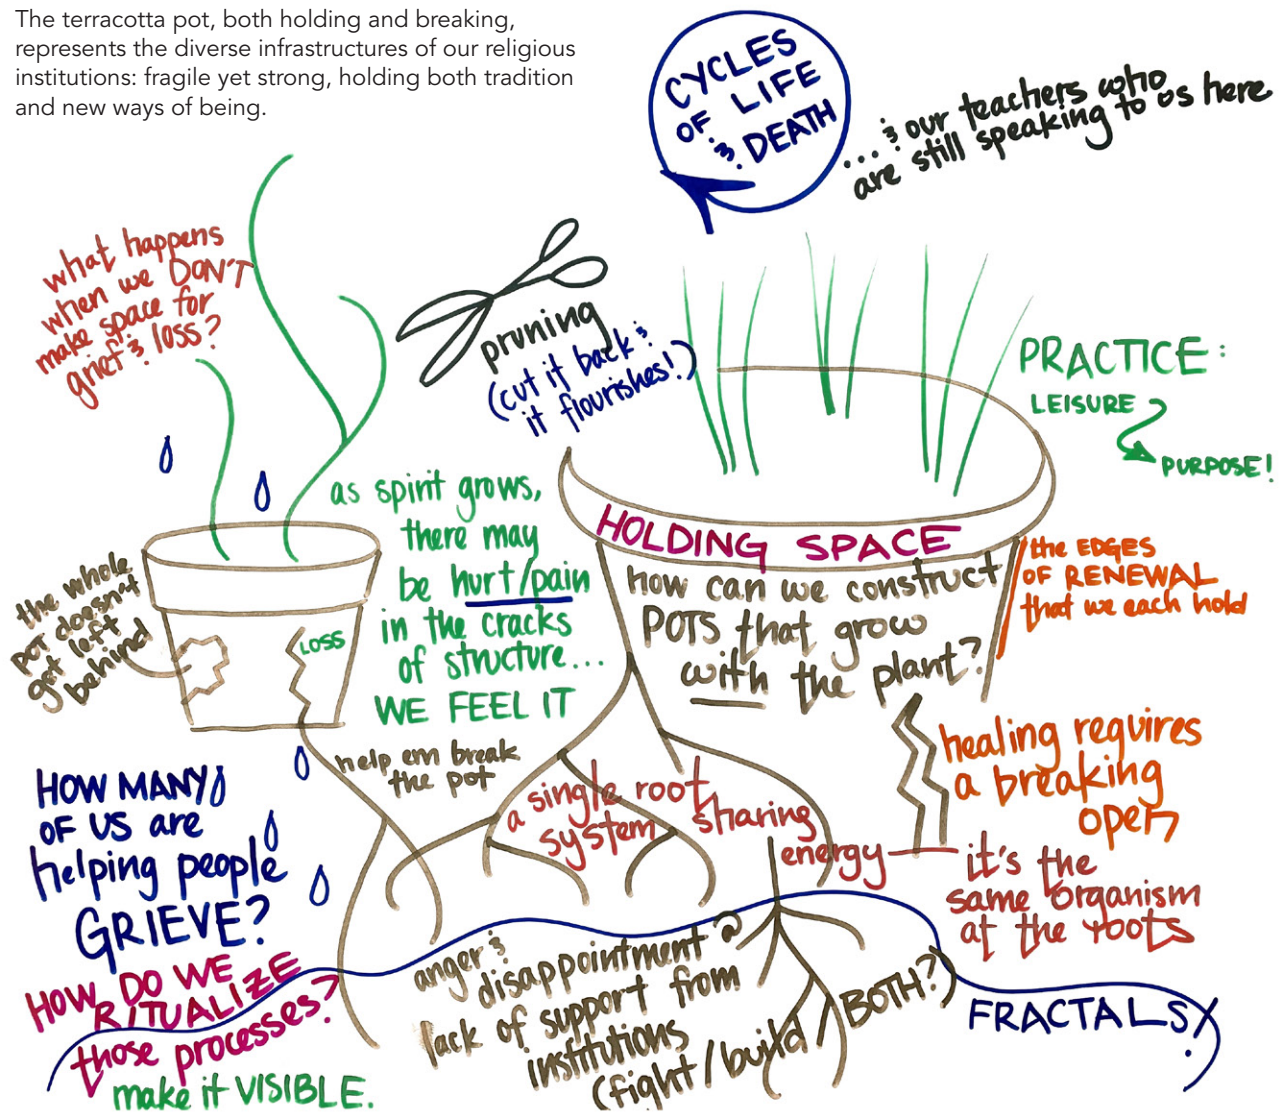 The terracotta pot, both holding and breaking,
represents the diverse infrastructures of our religious
institutions: fragile yet strong, holding both tradition
and new ways of being.
CYCLES
OF LIFE
& DEATH
... & our teachers who
are still speaking to us here
what happens
when we DON'T
make space for
grief & loss?
pruning
(cut it back &
it flourishes!)
PRACTICE:
LEISURE
PURPOSE!
as spirit grows,
there may
be hurt/pain
in the cracks
of structure...
WE FEEL IT
HOLDING SPACE
how can we construct
POTS that grow
with the plant?
the EDGES
OF RENEWAL
that we each hold
the whole
pot doesn't
get left
behind
LOSS
help em break
the pot
healing requires
a breaking
open
a single root
system sharing
energy
it's the
same organism
at the roots
HOW MANY
OF US are
helping people
GRIEVE?
HOW DO WE
RITUALIZE
those processes?
make it VISIBLE.
anger &
disappointment @
lack of support from
institutions
(fight/build/BOTH?)
FRACTALS!